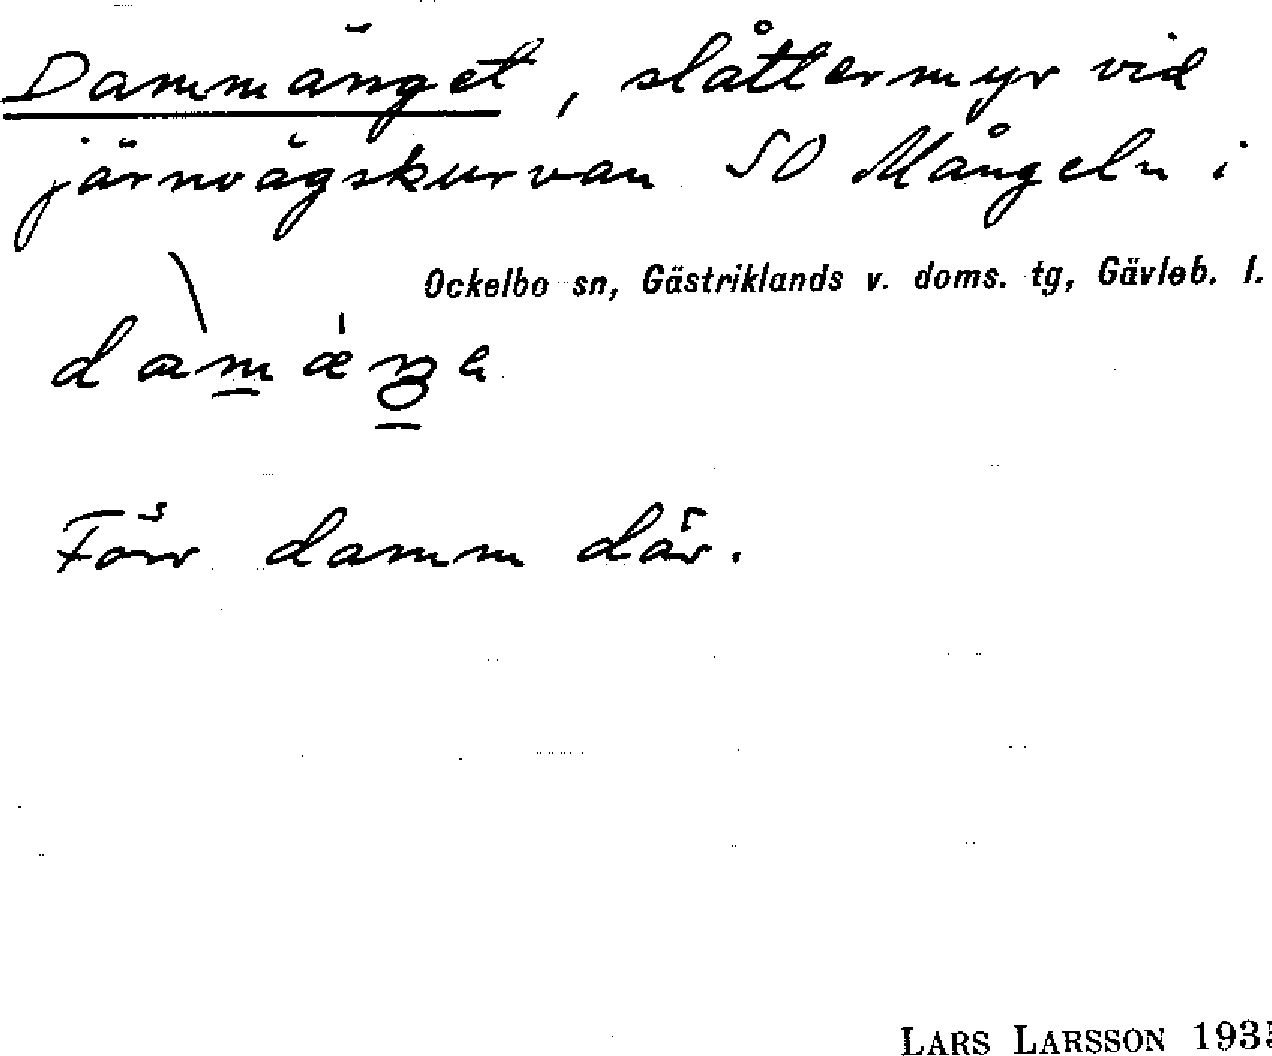 Dammänget, slåttermyr vid
järnvägskurvan SO Mångeln i
Ockelbo sn, Gästriklands v. doms. tg, Gävleb. l.
Förr damm där.
LARS LARSSON 193